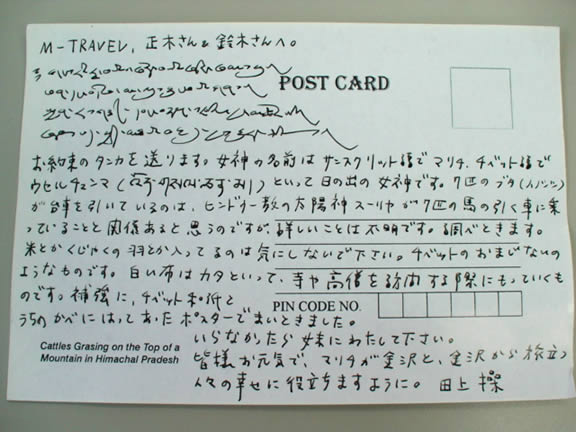 M-TRAVEL, 正木さん& 鈴木さんへ。
POST CARD
お約束のタンカを送ります。女神の名前はサンスクリット語でマリチ、チベット語で
ウセルチェンマ といって日の出の女神です。7匹のブタ(イノシシ)
が台車を引いているのは、ヒンドゥー教の太陽神スーリヤが7匹の馬の引く車に乗
っていることと関係あると思うのですが、詳しいことは不明です。調べときます。
米とかくじゃくの羽とか入ってるのは気にしないで下さい。チベットのおまじないの
ようなものです。白い布はカタといって、寺や高僧を訪問する際にもっていくも
のです。補強に、チベット和紙と
うちのかべにはってあったポスターでまいときました。
PIN CODE NO.
いらなかったら妹にわたして下さい。
Cattles Grasing on the Top of a
Mountain in Himachal Pradesh
皆様お元気で、マリチが金沢と、金沢から旅立つ
人々の幸せに役立ちますように。 田上 操